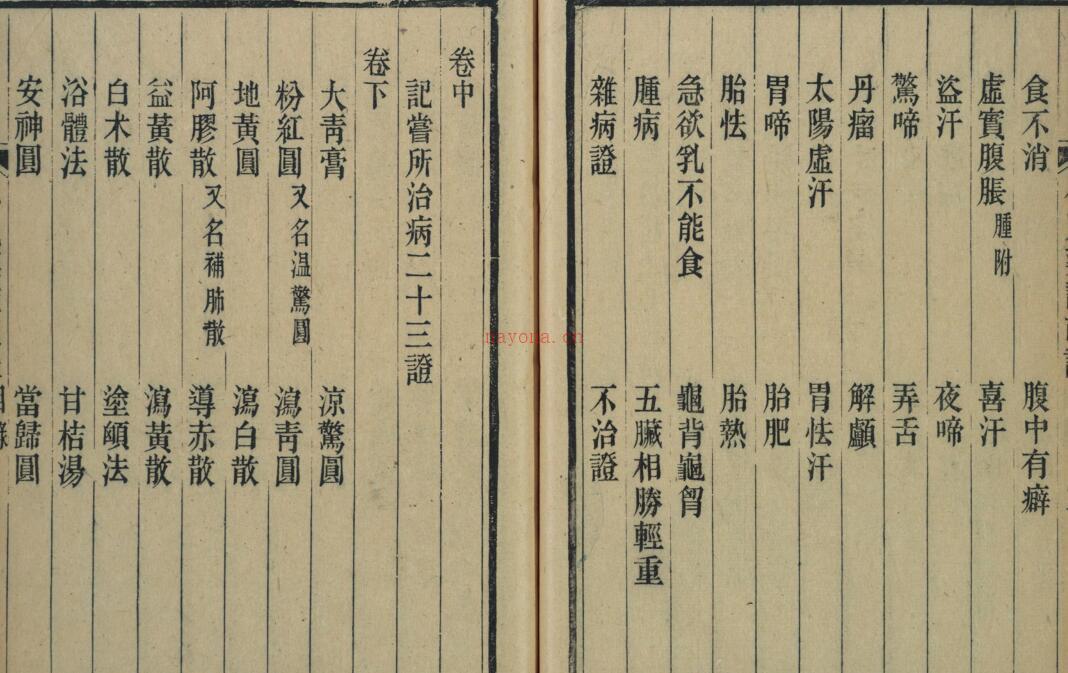 食不消 腹中有癖
虛實腹脹 腫附 喜汗
盜汗 夜啼
驚啼 弄舌
丹瘤 解顱
太陽虛汗 胃怯汗
胃啼 胎肥
胎怯 胎熱
急欲乳不能食 龜背龜胷
腫病 五臟相勝輕重
雜病證 不治證
卷中
記嘗所治病二十三證
卷下
大青膏 涼驚圓
粉紅圓 又名溫驚圓 瀉青圓
地黃圓 瀉白散
阿膠散 又名補肺散 導赤散
益黃散 瀉黃散
白木散 塗顖法
浴體法 甘桔湯
安神圓 當歸圓
nayona.cn